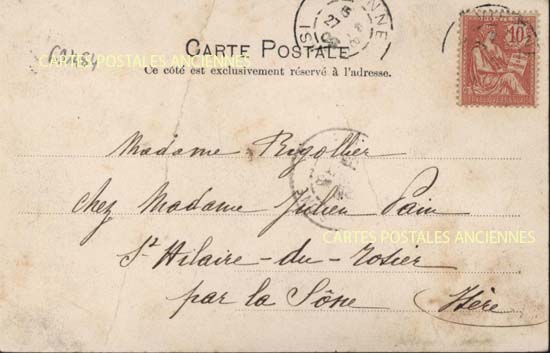 CARTE POSTALE
Ce côté est exclusivement réservé à l'adresse.
CARTES POSTALES ANCIENNES
POSTES
10
Madame Rigollier
chez Madame Julien Pain
CARTES POSTALES ANCIENNES
St Hilaire-du-Rosier
par la Sône (Isère)